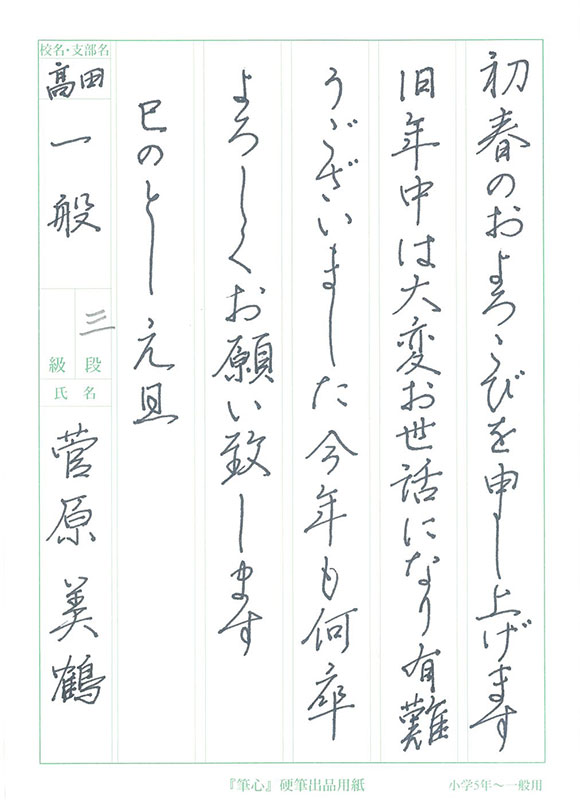 初春のおよろこびを申し上げます
旧年中は大変お世話になり有難
うございました今年も何卒
よろしくお願い致します
巳のとし元旦
校名・支部名
髙田
一般
三
級 段
氏 名
菅原美鶴
『筆心』硬筆出品用紙
小学5年～一般用